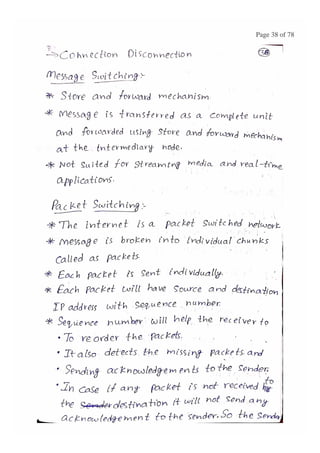 Page 38 of 78
3→Connection Disconnection
38
Message Switching:-
* Store and forward mechanism
* Message is transferred as a complete unit
and forwarded using store and forward mechanism
at the intermediary node.
* Not suited for streaming media and real-time
applications.
Packet Switching:-
* The internet is a packet switched network.
* message is broken into individual chunks
called as packets
* Each packet is sent individually.
* Each Packet will have source and destination
IP address with sequence number.
* Sequence number will help the receiver to
• To reorder the packets.
• It also detects the missing packets and
• Sending acknowledgements to the sender.
• In case if any packet is not received to
the Sender destination it will not send any
acknowledgement to the sender. So the sender